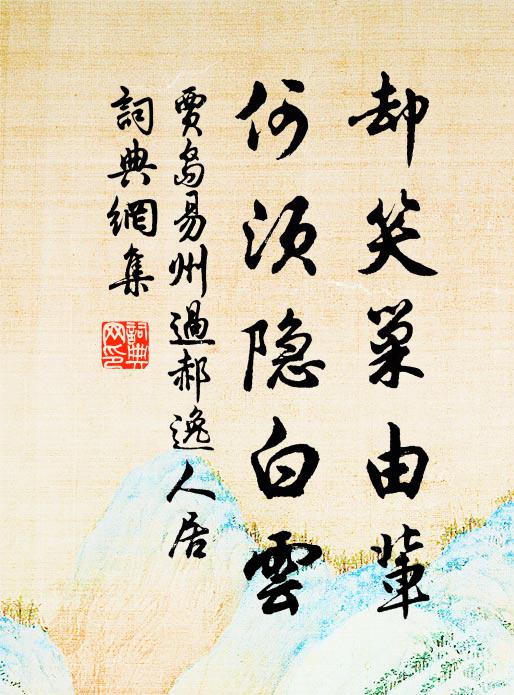 却笑巢由輩
何須隐白雲
賈島易州過郝逸人居
詞典網集
詞典網印